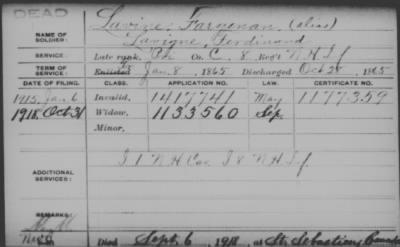 DEAD
Lavine, Fargenan, (alias)
NAME OF SOLDIER: Lavigne, Ferdinand
SERVICE: Late rank, Pvt Co. C, 8 Reg't N.H. Inf
TERM OF SERVICE: Enlisted Jan. 8, 1865 Discharged Oct 28, 1865
DATE OF FILING. CLASS. APPLICATION NO. LAW. CERTIFICATE NO.
1915, Jan 6 Invalid, 1417741 May 1177359
1918, Oct 31 Widow, 1133560 Sep.
Minor,
ADDITIONAL SERVICES: I 1 N H Cav. I 8 N.H. Inf
REMARKS:
Died Sept. 6, 1918, at St. Sebastien, Canada